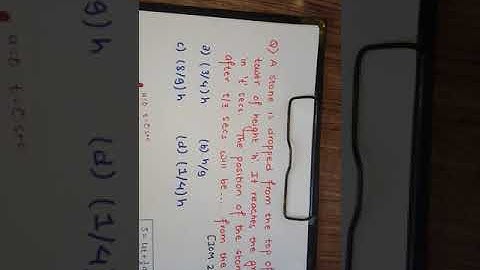 Q) A stone is dropped from the top of
tower of height 'h'. It reaches the
in 't' secs. The position of the
after t/3 secs will be... from the
[IOM 2
a) (3/4)h (b) h/9
c) (8/9)h (d) (1/4)h
u=0
9)h (d) (1/4
u=0